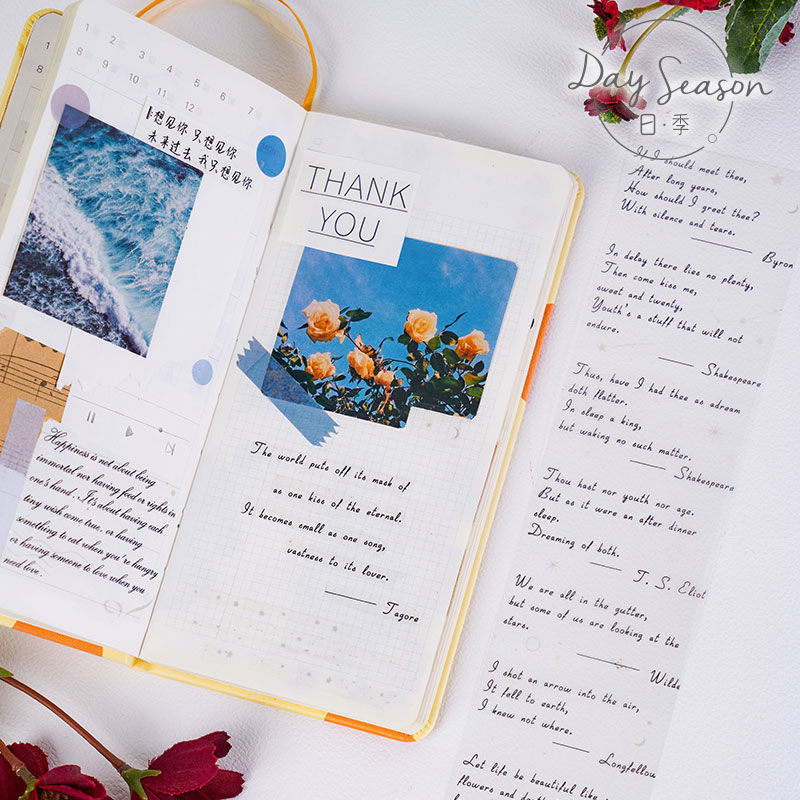 1 2 3 4 5 6 7
8 9 10 11 12
想见你 只想见你
未来过去 我只想见你
Happiness is not about being
immortal nor having food or rights in
one's hand. It's about having each
tiny wish come true, or having
something to eat when you're hungry
or having someone to love when you
need love.
THANK
YOU
The world puts off its mask of
as one kiss of the eternal.
It becomes small as one song,
vastness to its lover.
Tagore
Day Season
日·季
If I should meet thee,
After long years,
How should I greet thee?
With silence and tears.
Byron
In delay there lies no plenty,
Then come kiss me,
sweet and twenty,
Youth's a stuff that will not
endure.
Shakespeare
Thus, have I had thee as adream
doth flatter.
In sleep a king,
but waking no such matter.
Shakespeare
Thou hast nor youth nor age.
But as it were an after dinner
sleep.
Dreaming of both.
T. S. Eliot
We are all in the gutter,
but some of us are looking at the
stars.
Wilde
I shot an arrow into the air,
It fell to earth,
I knew not where.
Longfellou
Let life be beautiful like
flowers and